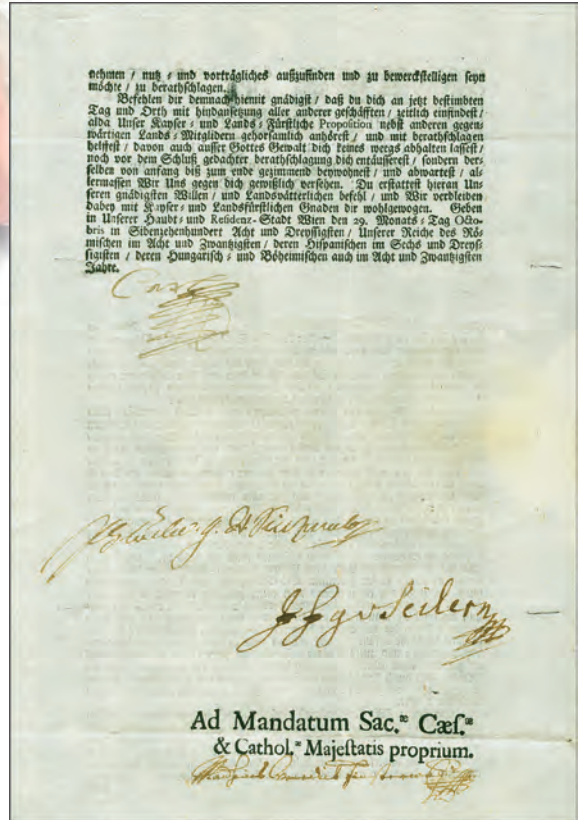 nehmen / nutz = und vorträgliches außzufinden und zu bewerckstelligen seyn
möchte / zu berathschlagen.
Befehlen dir demnach hiemit gnädigist / daß du dich an jetzt bestimbten
Tag und Orth mit hindansetzung aller anderer geschäfften / zeitlich einfindest /
alda Unser Kayser = und Lands = Fürstliche Proposition nebst anderen gegen=
wärtigen Lands = Mitglidern gehorsamlich anhörest / und mit berathschlagen
helffest / davon auch ausser Gottes Gewalt dich keines wegs abhalten lassest /
noch vor dem Schluß gedachter berathschlagung dich entäusserest / sondern der=
selben von anfang biß zum ende gezimmend beywohnest / und abwartest / al=
lermassen Wir Uns gegen dich gewißlich versehen. Du erstattest hieran Un=
seren gnädigisten Willen / und Landsvätterlichen befehl / und Wir verbleiben
dabey mit Kayser = und Landsfürstlichen Gnaden dir wohlgewogen. Geben
in Unserer Haubt = und Residenz = Stadt Wien den 29. Monats = Tag Octo=
bris in Sibenzehenhundert Acht und Dreyssigisten / Unserer Reiche des Rö=
mischen im Acht und Zwantzigisten / deren Hispanischen im Sechs und Dreys=
sigisten / deren Hungarisch = und Böheimischen auch im Acht und Zwantzigisten
Jahre.
Carl
J F G v Seilern
Ad Mandatum Sac.æ Cæſ.æ
& Cathol.æ Majeſtatis proprium.